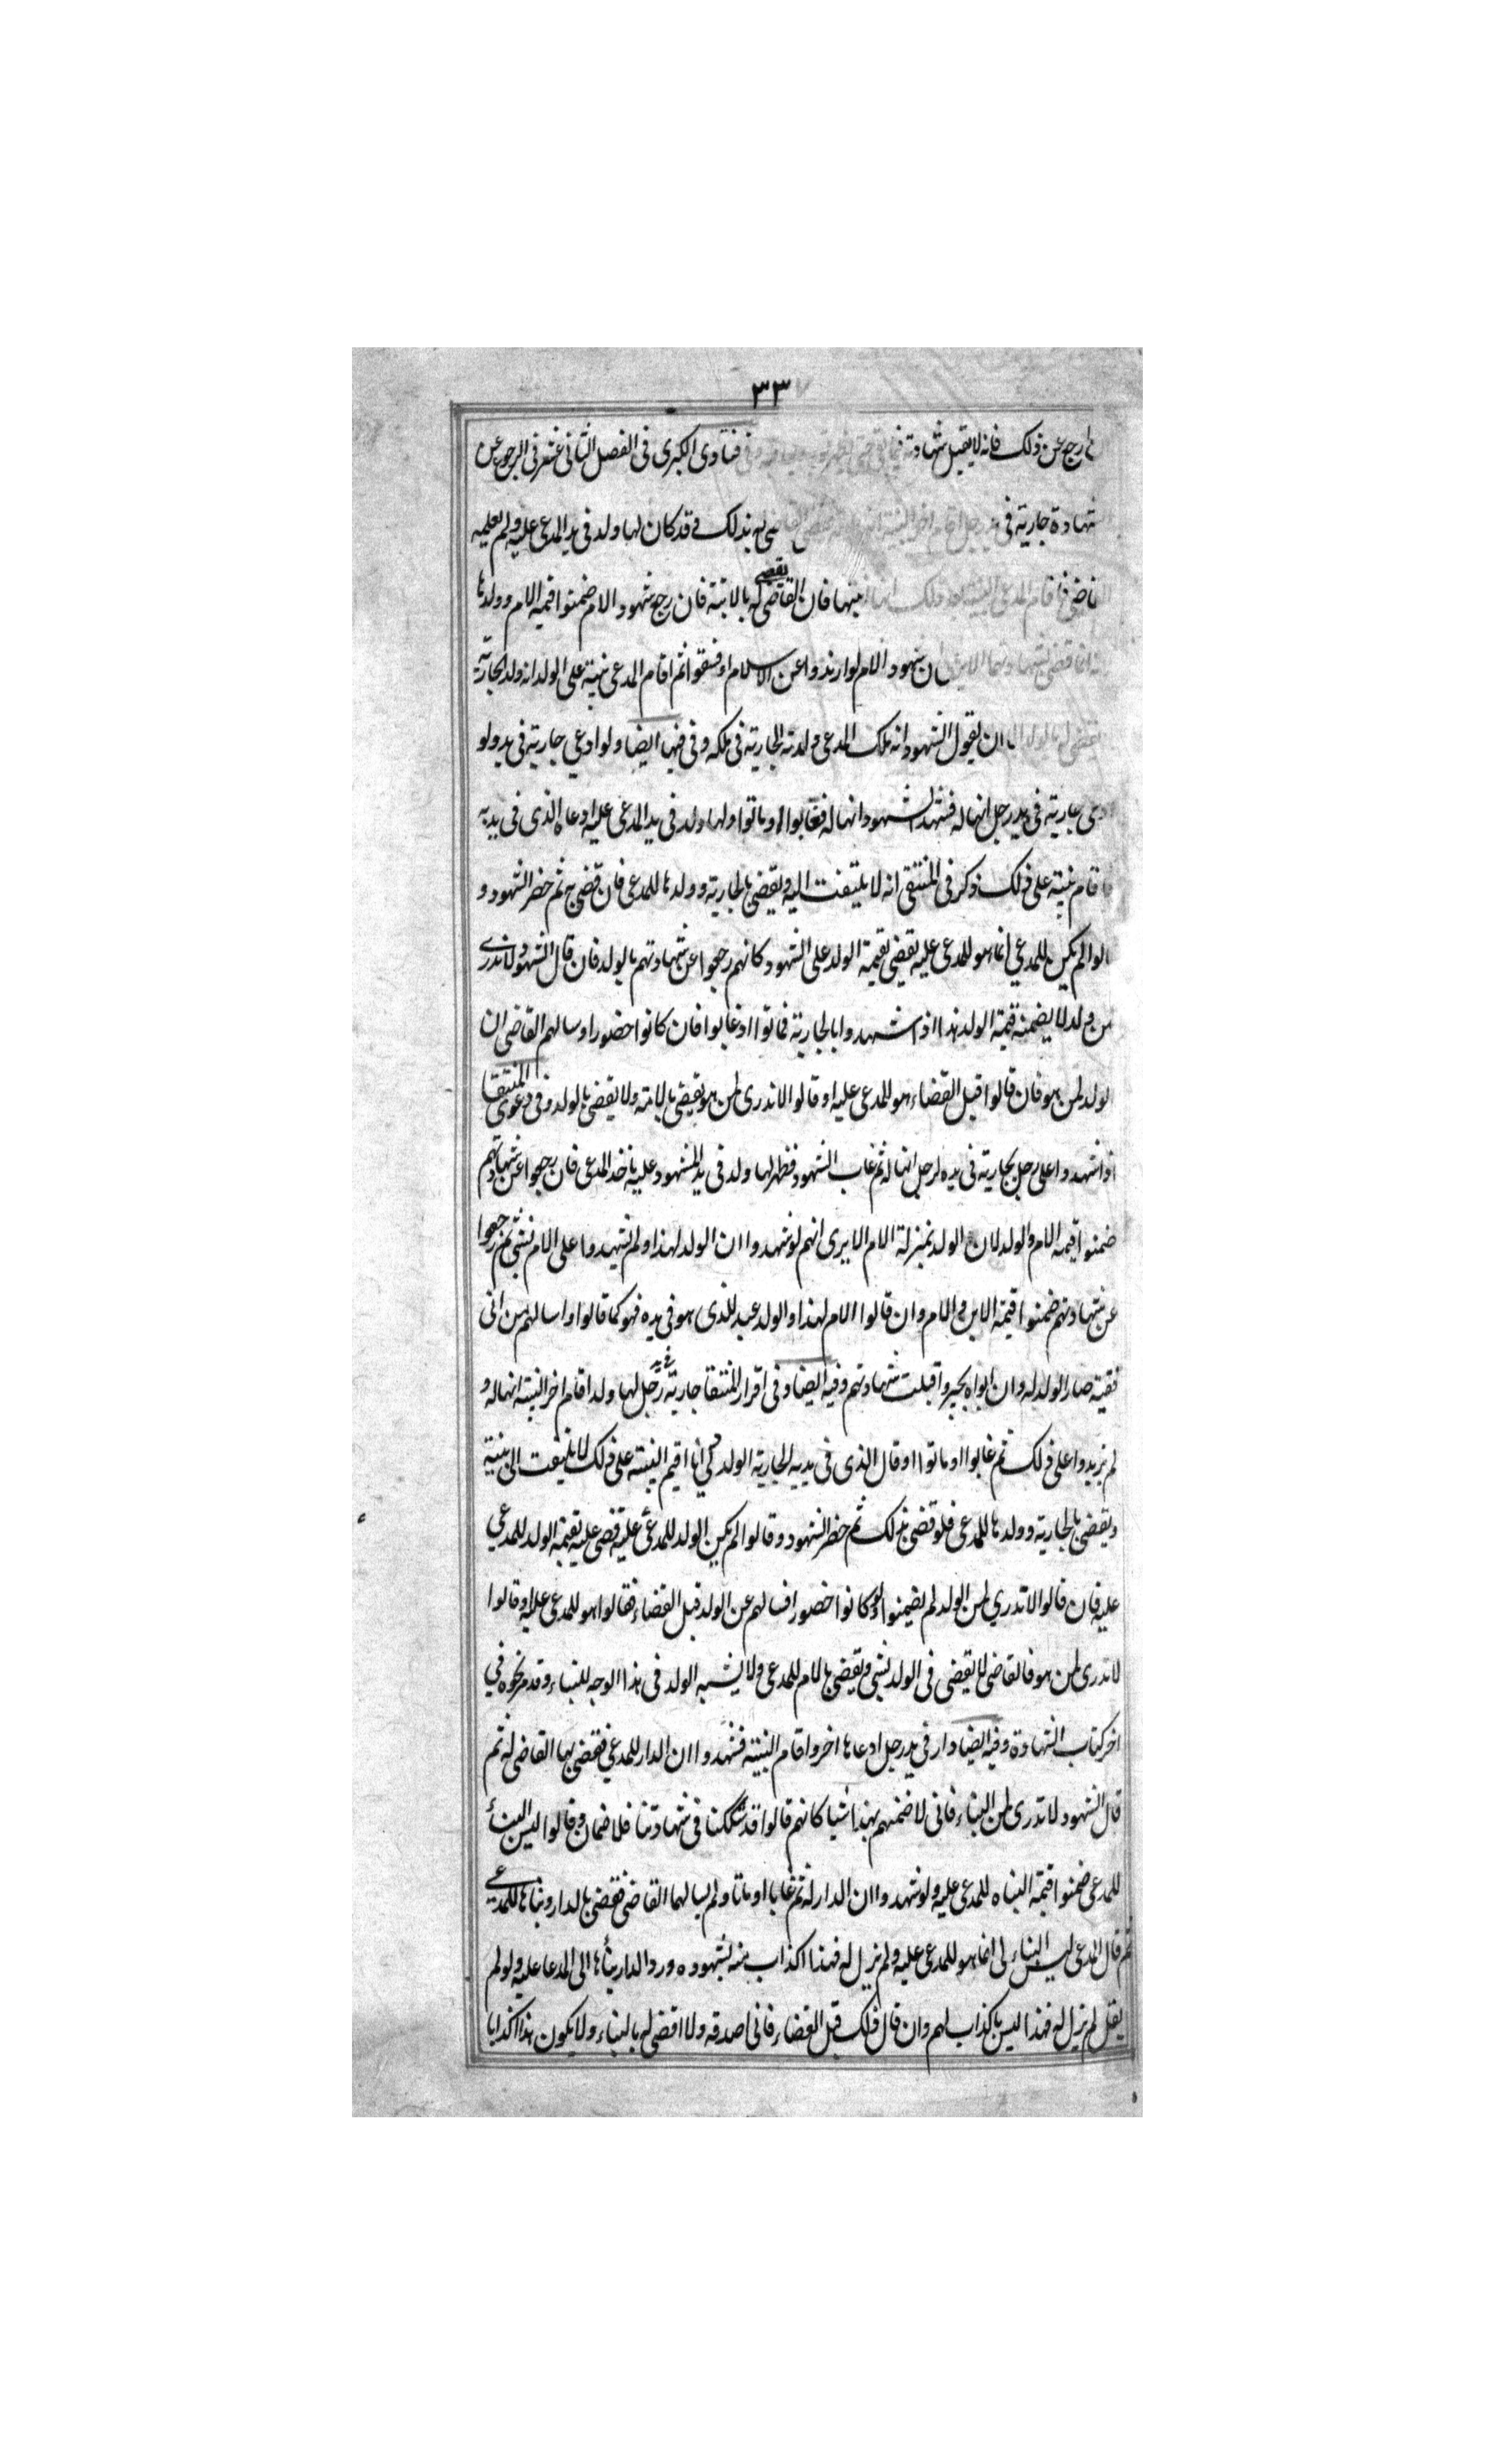 ٣٣
رجع عن ذلك فانه لا يقبل شهادته فتاوى الكبرى فى الفصل الثانى عشر فى الرجوع عن
شهادة جارية فى يد رجل اقام اخر البينة انها بذلك وقد كان لها ولد فى يد المدعى عليه ولم يعلم به
القاضى فاقام المدعى البينة فان القاضى يقضى له بالابنة فان رجع شهود الام ضمنوا قيمة الام وولدها
شهود الام لو ارتدوا عن الاسلام او فسقوا ثم اقام المدعى بينة على الولد انه ولد الجارية
ان يقول الشهود انه ملك المدعى ولدته الجارية فى ملكه وفى فيها ايضا ولو ادعى جارية فى يد ولو
جارية فى يد رجل انها له فشهد الشهود انها له فغابوا او ماتوا ولها ولد فى يد المدعى عليه ادعاه الذى فى يديه
قام بينة على ذلك ذكر فى المنتقى انه لا يلتفت اليه ويقضى بالجارية وولدها للمدعى فان قضى ج ثم حضر الشهود و
لم يكن للمدعي انما هو للمدعى عليه يقضى بقيمة الولد على الشهود وكانهم رجعوا عن شهادتهم بالولد فان قال الشهود لا ندرى
لمن ولد لا يضمنه قيمة الولد هذا اذا شهدوا بالجارية فماتوا او غابوا فان كانوا حضورا وسالهم القاضى ان
الولد لمن هو فان قالوا قبل القضاء هو للمدعى عليه او قالوا لا ندرى لمن هو يقضى بالامة ولا يقضى بالولد وفى دعوى المنتقا
اذا شهدوا على رجل بجارية فى يده لرجل انها له ثم غاب الشهود فظهر لها ولد فى يد المشهود عليه ياخذ المدعى فان رجعوا عن شهادتهم
ضمنوا قيمة الام والولد لان الولد بمنزلة الام الا يرى انهم لو شهدوا ان الولد لهذا ولم يشهدوا على الام بشى ثم رجعوا
عن شهادتهم ضمنوا قيمة الابن والام وان قالوا الام لهذا والولد عبد للذى هو فى يده فهو كما قالوا وسالهم من انى
صار الولد له وان ابوا قبلت شهادتهم وفيه ايضا وفى اقرار المنتقا جارية فى يد رجل لها ولد اقام اخر البينة انها له و
لم يزيدوا على ذلك ثم غابوا او ماتوا او قال الذى فى يديه الجارية الولد لي انا اقيم البينة على ذلك لا يلتفت الى بينته
ويقضى بالجارية وولدها للمدعى فلو قضى بذلك ثم حضر الشهود وقالوا لم يكن الولد للمدعى عليه قضى عليه بقيمة الولد للمدعى
عليه فان قالوا لا ندري لمن الولد لم يضمنوا ولو كانوا حضورا فسالهم عن الولد قبل القضاء فقالوا هو للمدعى عليه او قالوا
لا ندرى لمن هو فالقاضى لا يقضى فى الولد بشى ويقضى بالام للمدعى ولا يشبه الولد فى هذا الوجه للبناء وقد مر نحوه في
اخر كتاب الشهادة وفيه ايضا دار فى يد رجل ادعاها اخر واقام البينة فشهدوا ان الدار للمدعي فقضى بها القاضى له ثم
قال الشهود لا ندرى لمن البناء فانى لا اضمنهم بهذا شيا كانهم قالوا قد شككنا فى شهادتنا فلا ضمان وقالوا ليس البناء
للمدعى ضمنوا قيمة البناه للمدعى عليه ولو شهدوا ان الدار له ثم غابا او ماتا ولم يسالهما القاضى فقضى بالدار وبناها للمدعي
ثم قال المدعى ليس البناء لى انما هو للمدعى عليه ولم يزل له فهذا اكذاب منه لشهوده ورد الدار بناها الى المدعا عليه ولو لم
يقل لم يزل له فهذا ليس باكذاب لهم وان قال ذلك قبل القضاء فانى اصدقه ولا اقضى له بالبناء ولا يكون هذا اكذابا